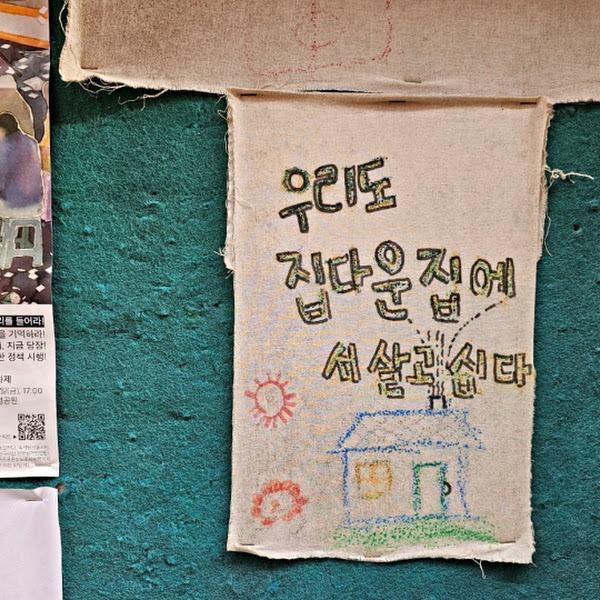 우리도
집다운 집에
서 살고 싶다
를 들어라!
을 기억하라!
지금 당장!
정책 시행!
17:00